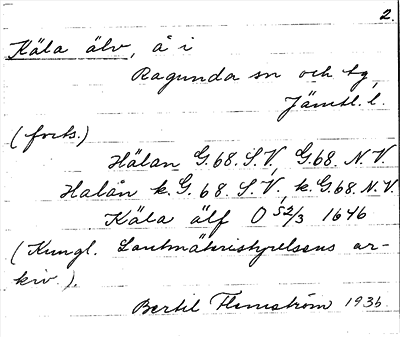 2.
Käla älv, å i
Ragunda sn och tg,
Jämtl. l.
(forts.)
Hälan G.68. S.V, G.68. N.V.
Halån k. G. 68. S.V, k. G.68. N.V.
Käla älf O 52/3 1646
(Kungl. Lantmäteristyrelsens ar-
kiv.).
Bertil Flemström 1936.